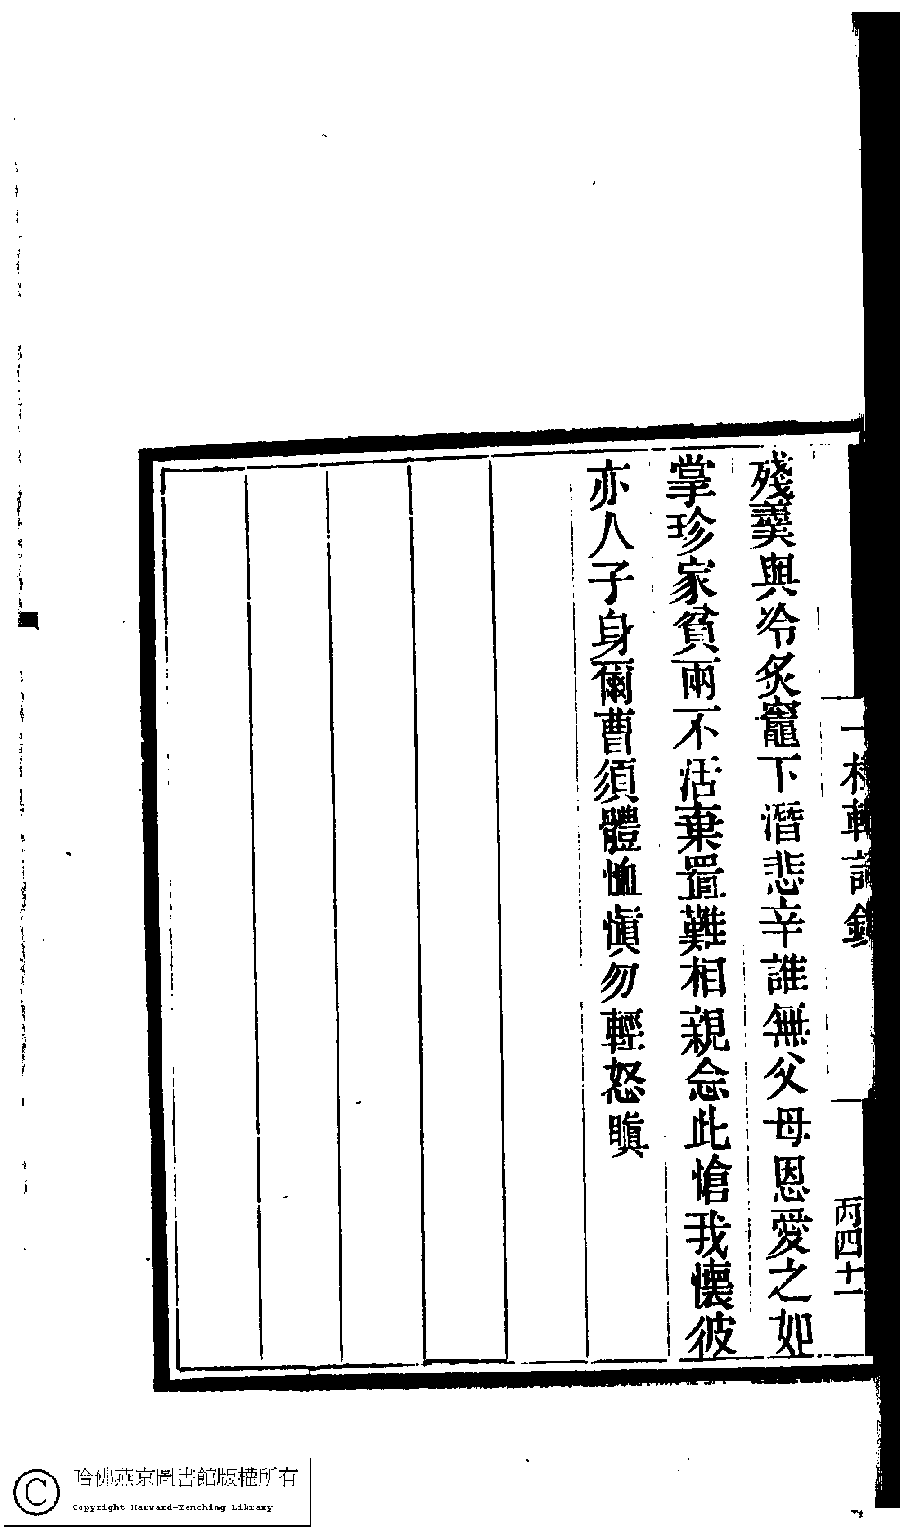 殘羹與冷炙竈下潛悲辛誰無父母恩愛之如
掌珍家貧兩不活棄置難相親念此愴我懷彼
亦人子身爾曹須體恤愼勿輕怒瞋
軒詩錄
丙四十一
哈佛燕京圖書館版權所有
Copyright Harvard-Yenching Library